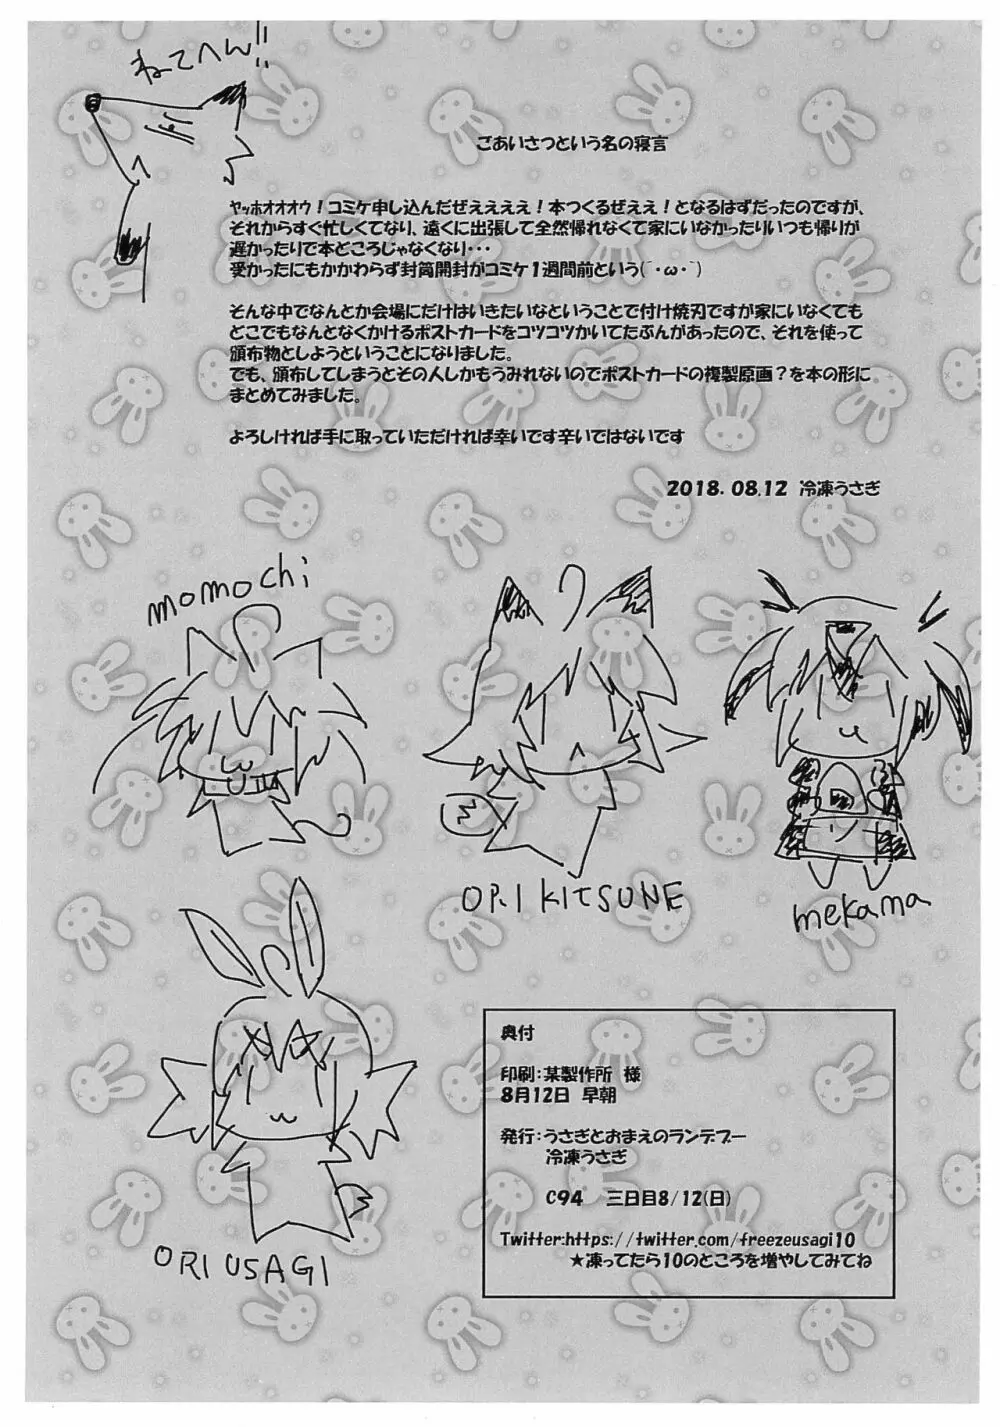 ねてへん!!
ごあいさつという名の寝言
ヤッホオオオウ！コミケ申し込んだぜええええ！本つくるぜええ！となるはずだったのですが、
それからすぐ忙しくてなり、遠くに出張して全然帰れなくて家にいなかったりいつも帰りが
遅かったりで本どころじゃなくなり・・・
受かったにもかかわらず封筒開封がコミケ1週間前という(´・ω・`)
そんな中でなんとか会場にだけはいきたいなということで付け焼刃ですが家にいなくても
どこでもなんとなくかけるポストカードをコツコツかいてたぶんがあったので、それを使って
頒布物としようということになりました。
でも、頒布してしまうとその人しかもうみれないのでポストカードの複製原画？を本の形に
まとめてみました。
よろしければ手に取っていただければ幸いです辛いではないです
2018.08.12 冷凍うさぎ
momochi
ORI KITSUNE
mekama
ORI USAGI
奥付
印刷：某製作所 様
8月12日 早朝
発行：うさぎとおまえのランデブー
冷凍うさぎ
C94 三日目8/12(日)
Twitter:https://twitter.com/freezeusagi10
★凍ってたら10のところを増やしてみてね